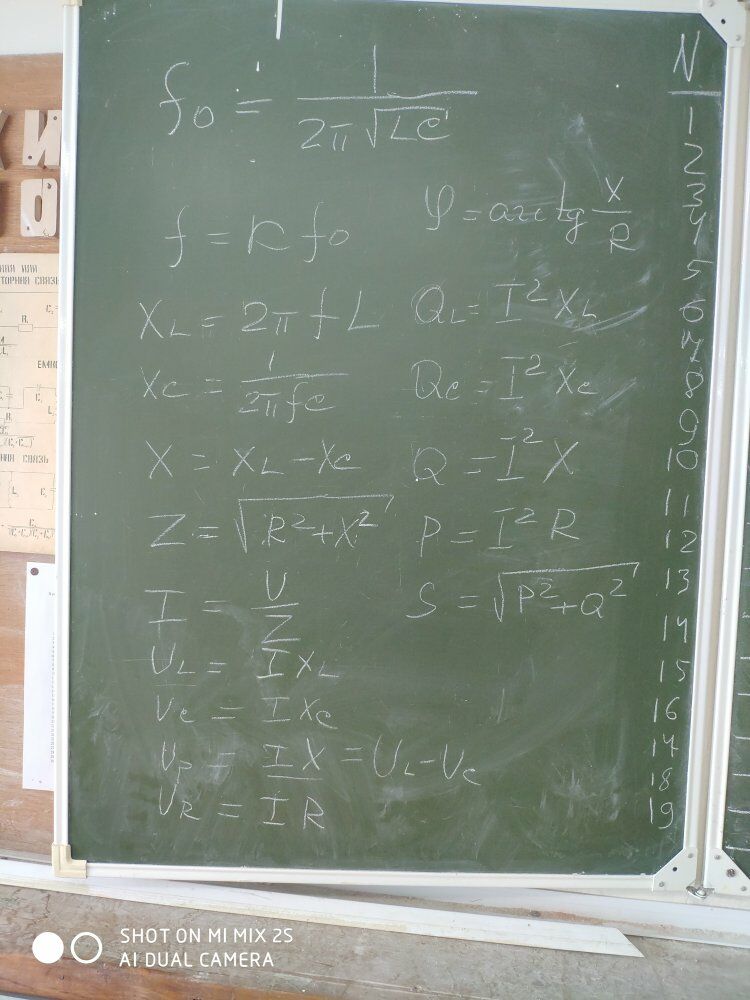 f₀ = 1 / 2π √LC
φ = arctg X / R
f = k f₀
X_L = 2π f L
Q_L = I² X_L
X_C = 1 / 2π f C
Q_C = I² X_C
X = X_L - X_C
Q = I² X
Z = √R² + X²
P = I² R
I = U / Z
S = √P² + Q²
U_L = I X_L
U_C = I X_C
U_P = I X = U_L - U_C
U_R = I R
N
1
2
3
4
5
6
7
8
9
10
11
12
13
14
15
16
17
18
19
К И
О
ТОРНАЯ СВЯЗЬ
R₁
НАЯ СВЯЗЬ
SHOT ON MI MIX 2S
AI DUAL CAMERA